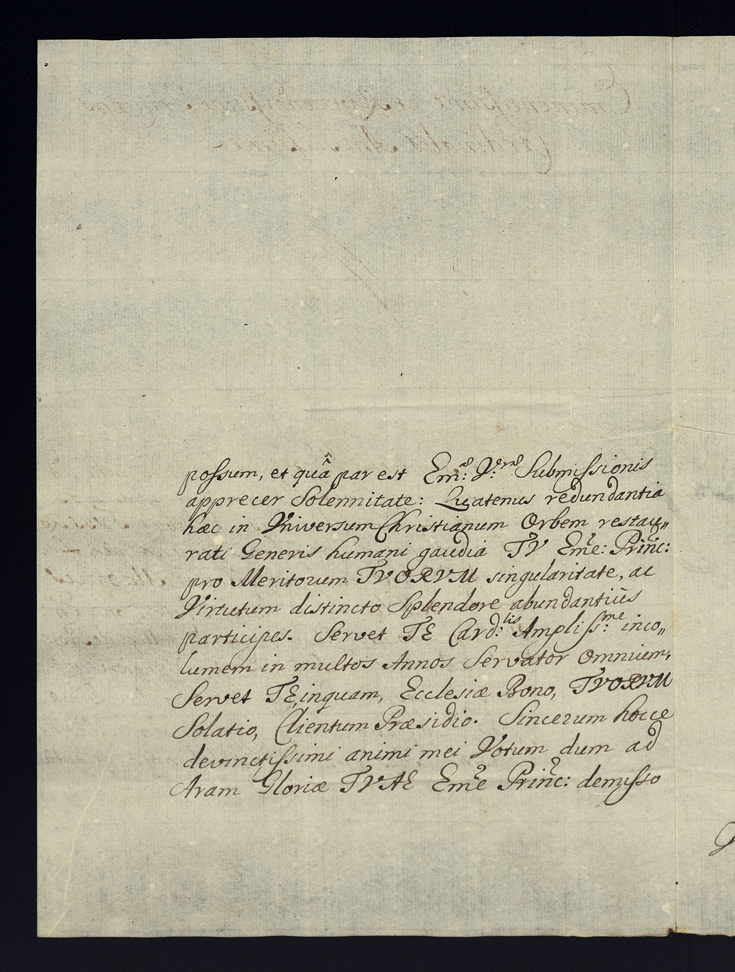 possum, et quâ par est Em:ae V:rae Submissionis
apprecer Solennitate: Quatenus redundantia
hæc in Vniversum Christianum Orbem restau„
rati Generis humani gaudia TV Eme: Princ:
pro Meritorum TVORVM singularitate, ac
Virtutum distincto Splendore abundantiùs
participes. Servet TE Card:lis Ampliss:me inco„
lumem in multos Annos Servator Omnium,
Servet TE, inquam, Ecclesiæ Bono, TVORVM
Solatio, Clientum Præsidio. Sincerum hocce
devinctissimi animi mei Votum dum ad
Aram Gloriæ TVAE Eme Princ: demisso